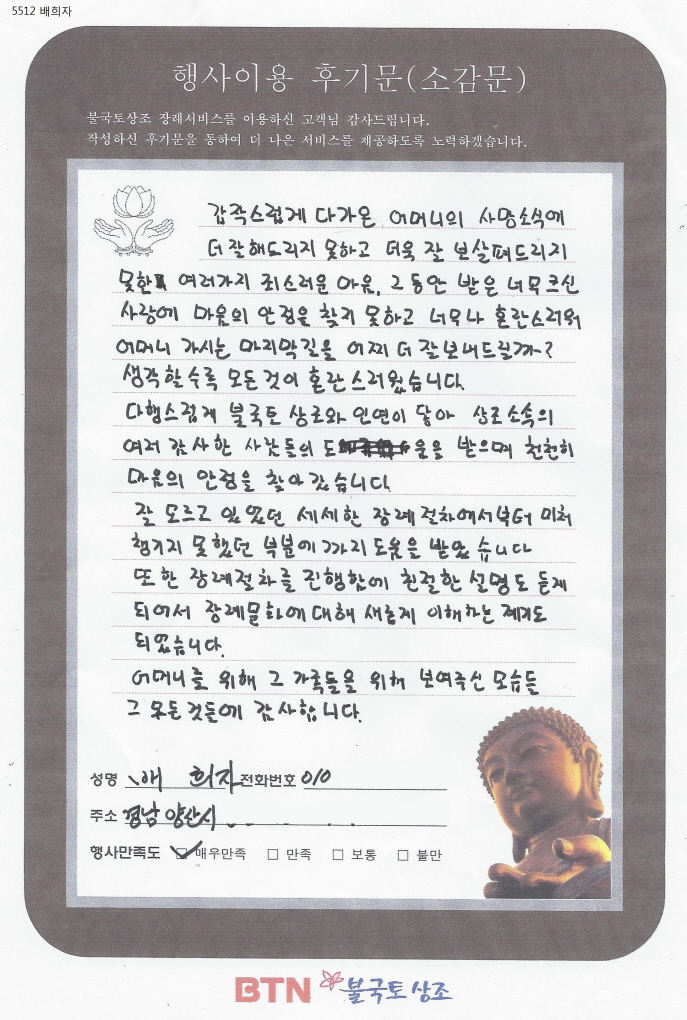 5512 배희자
행사이용 후기문(소감문)
불국토상조 장례서비스를 이용하신 고객님 감사드립니다.
작성하신 후기문을 통하여 더 나은 서비스를 제공하도록 노력하겠습니다.
갑작스럽게 다가온 어머니의 사망소식에
더 잘해드리지 못하고 더욱 잘 보살펴드리지
못한 여러가지 죄스러운 마음, 그동안 받은 너무 크신
사랑에 마음의 안정을 찾지 못하고 너무나 혼란스러워
어머니 가시는 마지막길을 어찌 더 잘보내드릴까?
생각할수록 모든것이 혼란스러웠습니다.
다행스럽게 불국토 상조와 인연이 닿아 상조소속의
여러 감사한 사람들의 도움을 받으며 천천히
마음의 안정을 찾아갔습니다.
잘 모르고 있었던 세세한 장례절차에서부터 미처
챙기지 못했던 부분에까지 도움을 받았습니다
또한 장례절차를 진행함에 친절한 설명도 듣게
되어서 장례문화에 대해 새롭게 이해하는 계기도
되었습니다.
어머니를 위해 그 가족들을 위해 보여주신 모습들
그 모든것들에 감사합니다.
성명 배 희자 전화번호 010
주소 경남 양산시
행사만족도 ☑ 매우만족 □ 만족 □ 보통 □ 불만
BTN 불국토상조